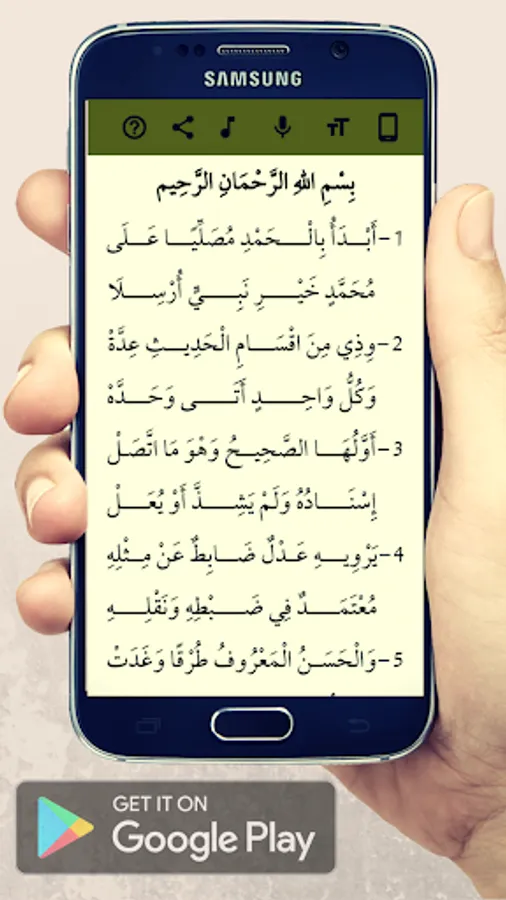 SAMSUNG
بِسْمِ اللهِ الرَّحْمَانِ الرَّحِيم
1– أَبْـدَأُ بِالْـحَمْدِ مُصَلِّيًـا عَـلَى
مُحَمَّدٍ خَيْـرِ نَبِـيٍّ أُرْسِـلَا
2– وِذِي مِنَ اقْسَـامِ الْحَدِيـثِ عِدَّةْ
وَكُلُّ وَاحِـدٍ أَتَـى وَحَـدَّهْ
3– أَوَّلُهَـا الصَّحِيـحُ وَهْوَ مَا اتَّصَلْ
إِسْنَـادُهُ وَلَمْ يَشِـذَّ أَوْ يُعَـلْ
4– يَرْوِيـهِ عَـدْلٌ ضَـابِطٌ عَنْ مِـثْلِهِ
مُعْتَمَـدٌ فِي ضَـبْطِهِ وَنَقْلِـهِ
5– وَالْحَسَـنُ الْمَعْرُوفُ طُرْقًا وَغَدَتْ
GET IT ON
Google Play